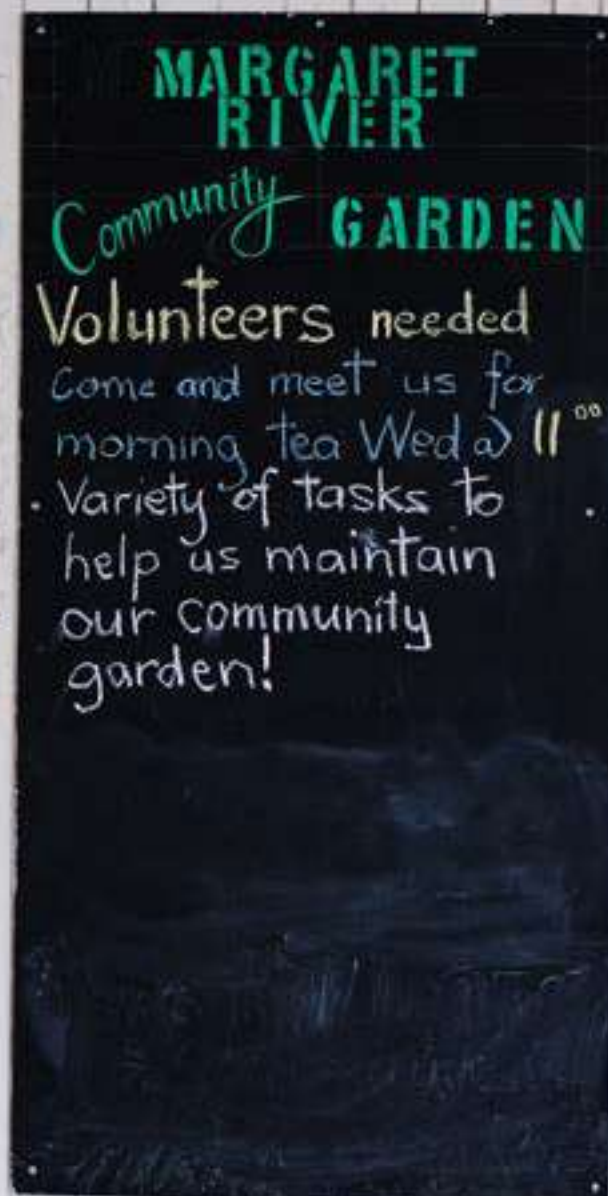 MARGARET
RIVER
Community GARDEN
Volunteers needed
Come and meet us for
morning tea Wed @ 11°°
• Variety of tasks to
help us maintain
our community
garden!